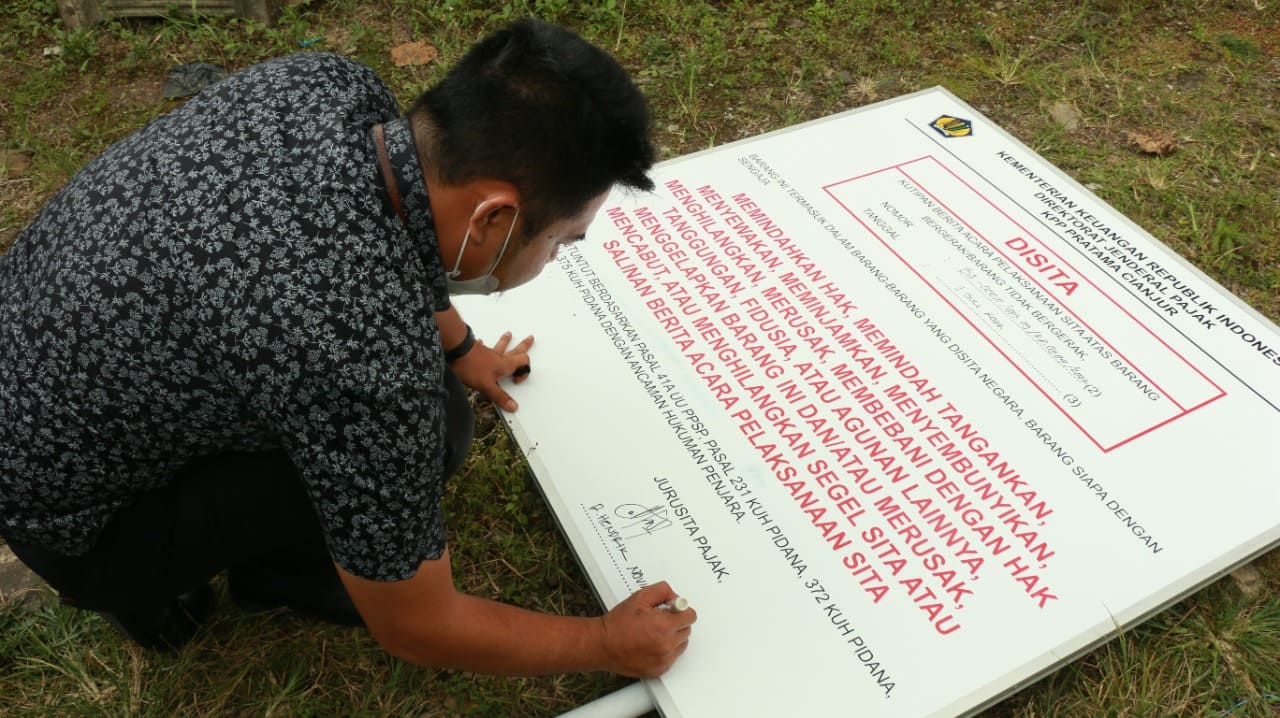 KEMENTERIAN KEUANGAN REPUBLIK INDONE
DIREKTORAT JENDERAL PAJAK
KPP PRATAMA CIANJUR
DISITA
KUTIPAN BERITA ACARA PELAKSANAAN SITA ATAS BARANG
BERGERAK/BARANG TIDAK BERGERAK
NOMOR (2)
TANGGAL (3)
BARANG INI TERMASUK DALAM BARANG-BARANG YANG DISITA NEGARA, BARANG SIAPA DENGAN
SENGAJA
MEMINDAHKAN HAK, MEMINDAH TANGANKAN,
MENYEWAKAN, MEMINJAMKAN, MENYEMBUNYIKAN,
MENGHILANGKAN, MERUSAK, MEMBEBANI DENGAN HAK
TANGGUNGAN, FIDUSIA, ATAU AGUNAN LAINNYA,
MENGGELAPKAN BARANG INI DAN/ATAU MERUSAK,
MENCABUT, ATAU MENGHILANGKAN SEGEL SITA ATAU
SALINAN BERITA ACARA PELAKSANAAN SITA
TUNTUT BERDASARKAN PASAL 41A UU PPSP, PASAL 231 KUH PIDANA, 372 KUH PIDANA,
375 KUH PIDANA DENGAN ANCAMAN HUKUMAN PENJARA.
JURUSITA PAJAK,
HENDRIK